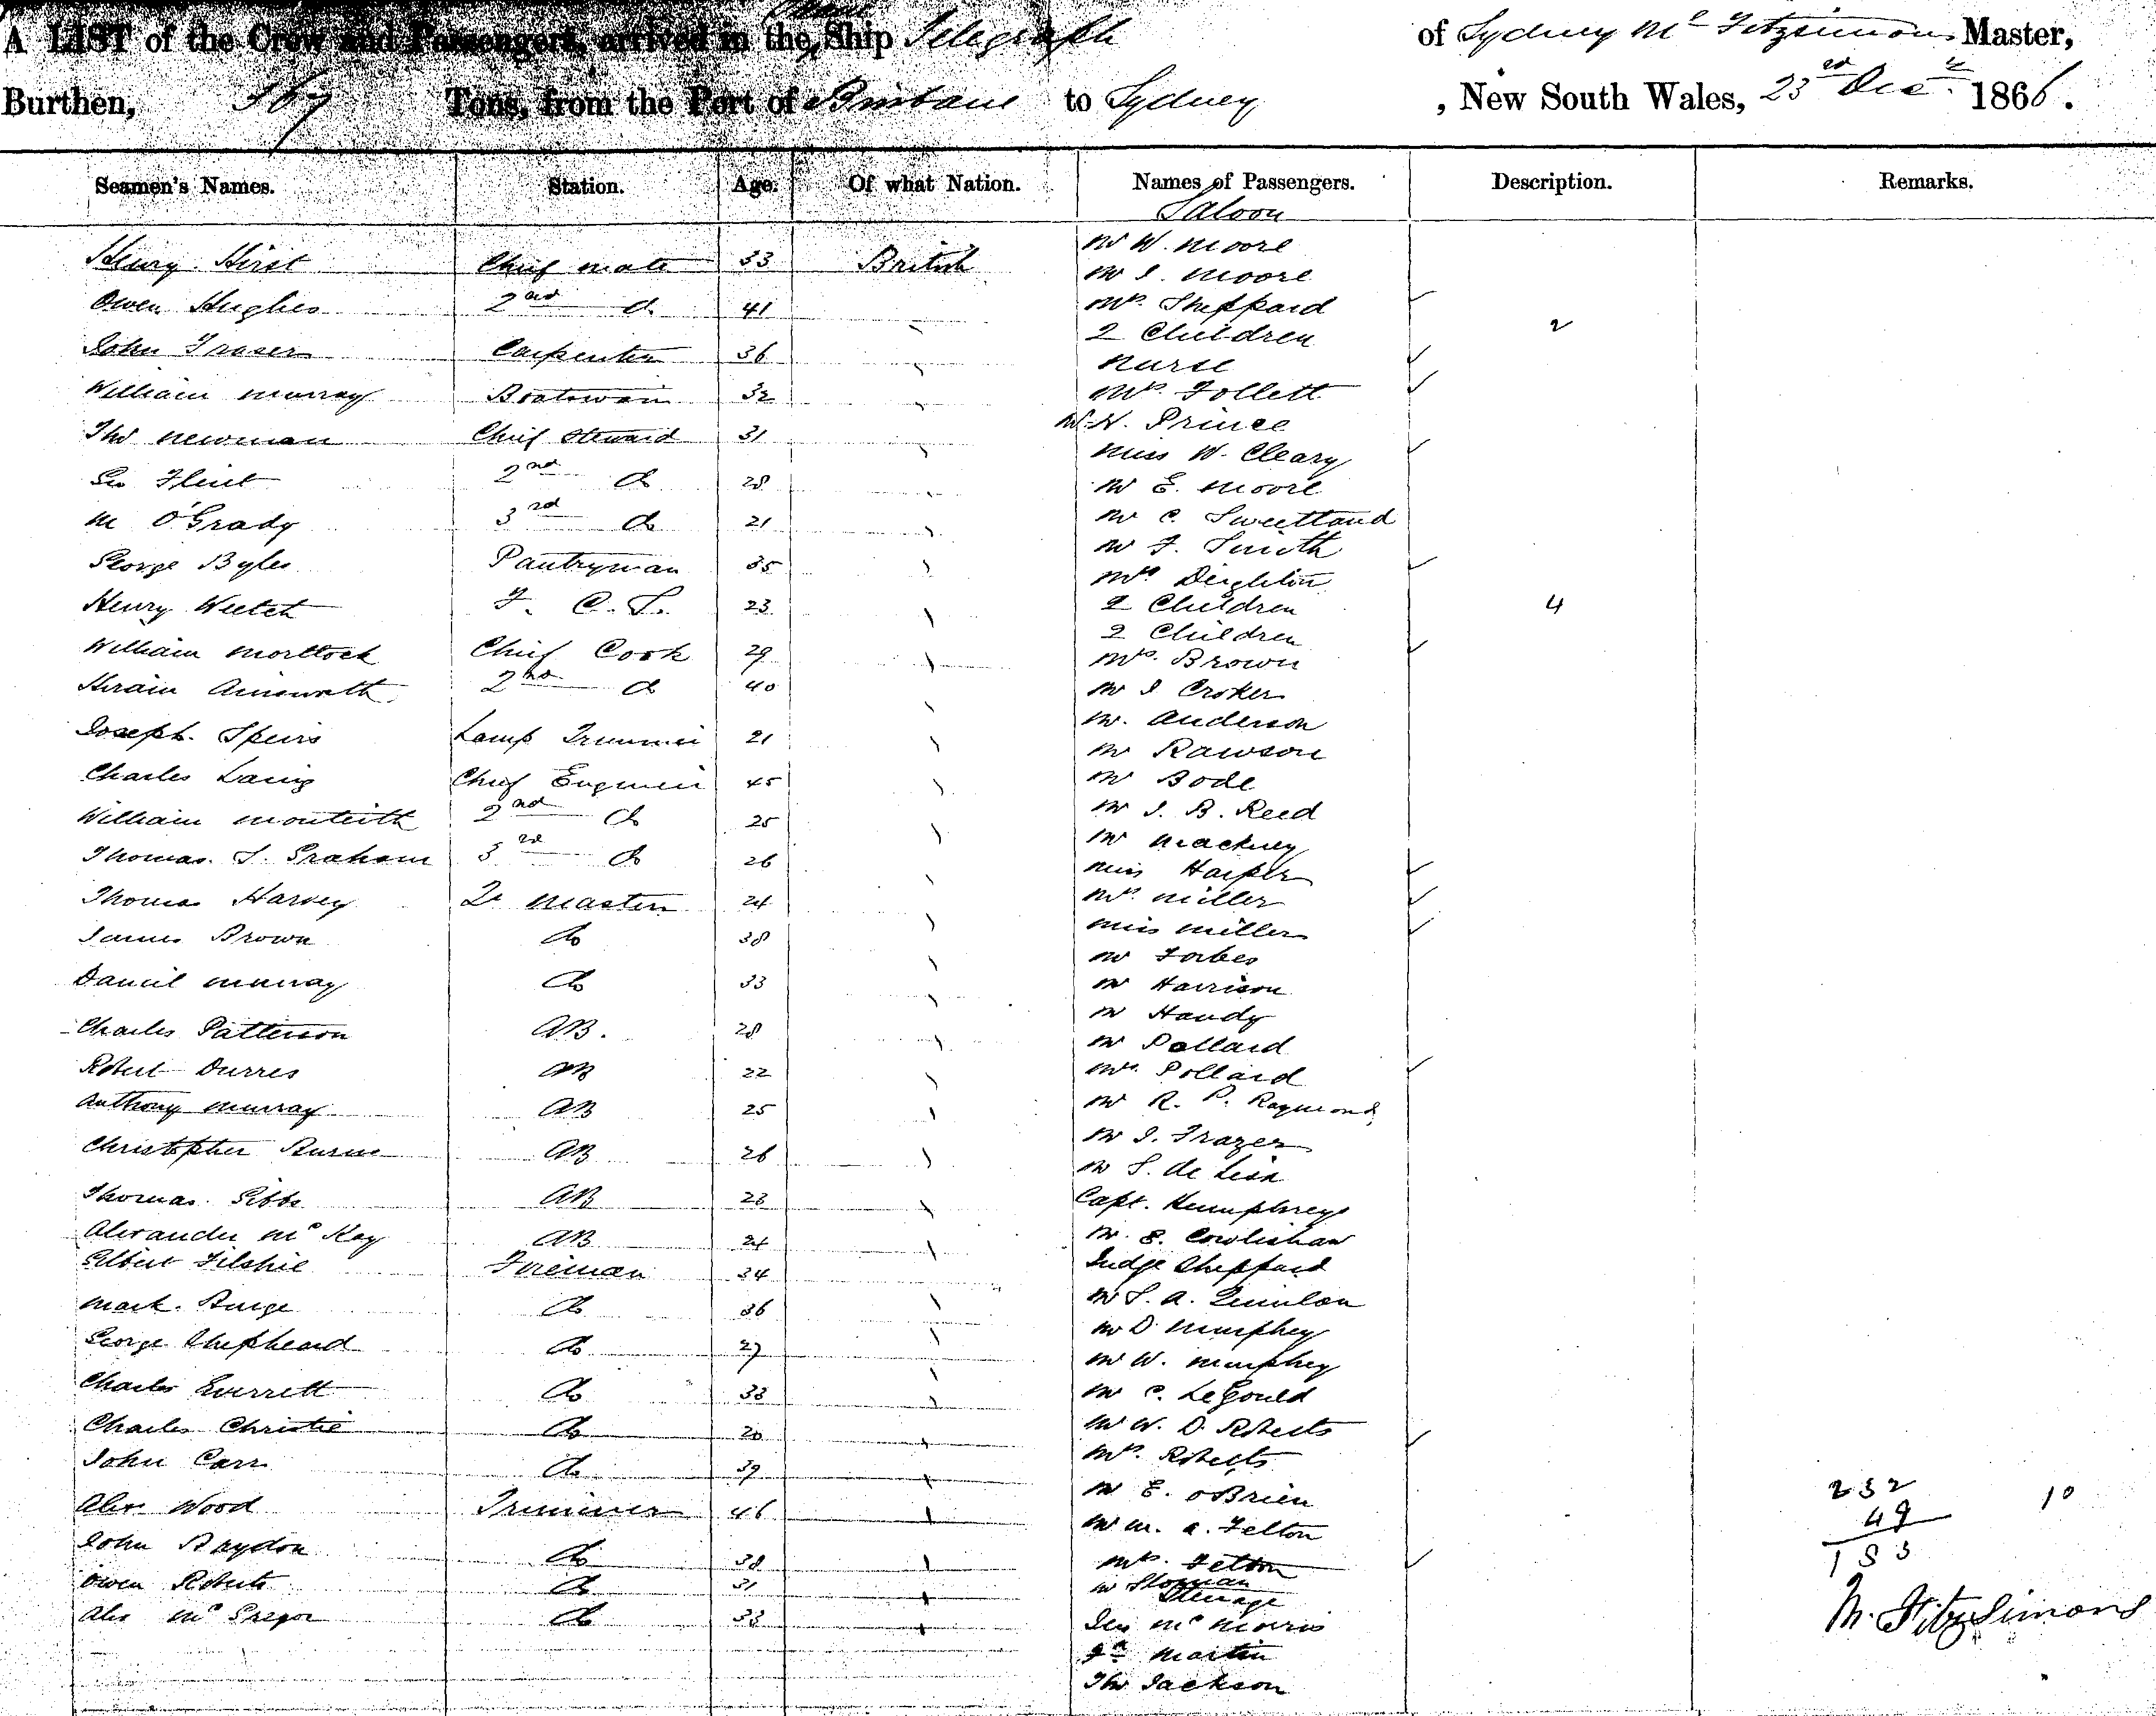 A LIST of the Crew and Passengers, arrived in the Ship Telegraph of Sydney Mc Fitzsimons Master,
Burthen, 367 Tons, from the Port of Brisbane to Sydney, New South Wales, 23rd Decr. 1866.
Seamen's Names. Station. Age. Of what Nation. Names of Passengers. Description. Remarks.
Saloon
Henry Hirst Chief mate 33 British
Owen Hughes 2nd do 41
John Fraser Carpenter 36
William Murray Boatswain 32
Thos Newman Chief Steward 31
Geo Flint 2nd do 28
M O'Grady 3rd do 21
George Byles Pantryman 35
Henry Welch F. C. S. 23
William Morttock Chief Cook 29
Hirain Ainsworth 2nd do 40
Joseph Speirs Lamp Trimmer 21
Charles Laing Chief Engineer 45
William Monteith 2nd do 25
Thomas S. Graham 3rd do 26
Thomas Harvey Qr Master 24
James Brown do 38
Daniel Murray do 33
Charles Patterson AB. 28
Robert Durres AB 22
Anthony Murray AB 25
Christopher AB 26
Thomas Gibbs AB 23
Alexander McKay AB 24
Gilbert Filshie Fireman 34
Mark Burge do 36
George Shepheard do 27
Charles Everrett do 33
Charles Christie do 20
John Carr do 39
Alex Wood Trimmer 46
John Baydon do 38
Owen Roberts do 31
Alex McGregor do 33
Mr W. Moore
Mr J. Moore
Mrs. Sheppard
2 Children 2
Nurse
Mrs. Follett
Mr H. Prince
Miss W. Cleary
Mr E. Moore
Mr C. Sweetland
Mr F. Smith
Mrs Deighton
2 Children 4
2 Children
Mrs. Brown
Mr J Croker
Mr. Anderson
Mr Rawson
Mr Bode
Mr J. B. Reed
Mr Mackney
Miss Harper
Mrs. Miller
Miss Miller
Mr Forbes
Mr Harrison
Mr Handy
Mr Pollard
Mrs. Pollard
Mr R. P. Raymond
Mr J. Frazer
Mr S. de Lissa
Capt. Humphreys
Mr. E. Cowlishaw
Judge Sheppard
Mr P. A. Quinlan
Mr D Murphey
Mr W. Murphey
Mr C. LeGould
Mr W. D. Roberts
Mrs. Roberts
Mr E. OBrien
Mr M. A. Felton
Mrs. Felton
Mr Sloman
Steerage
Jas McMorris
Martin
Thos Jackson
232 10
49
183
M. FitzSimons